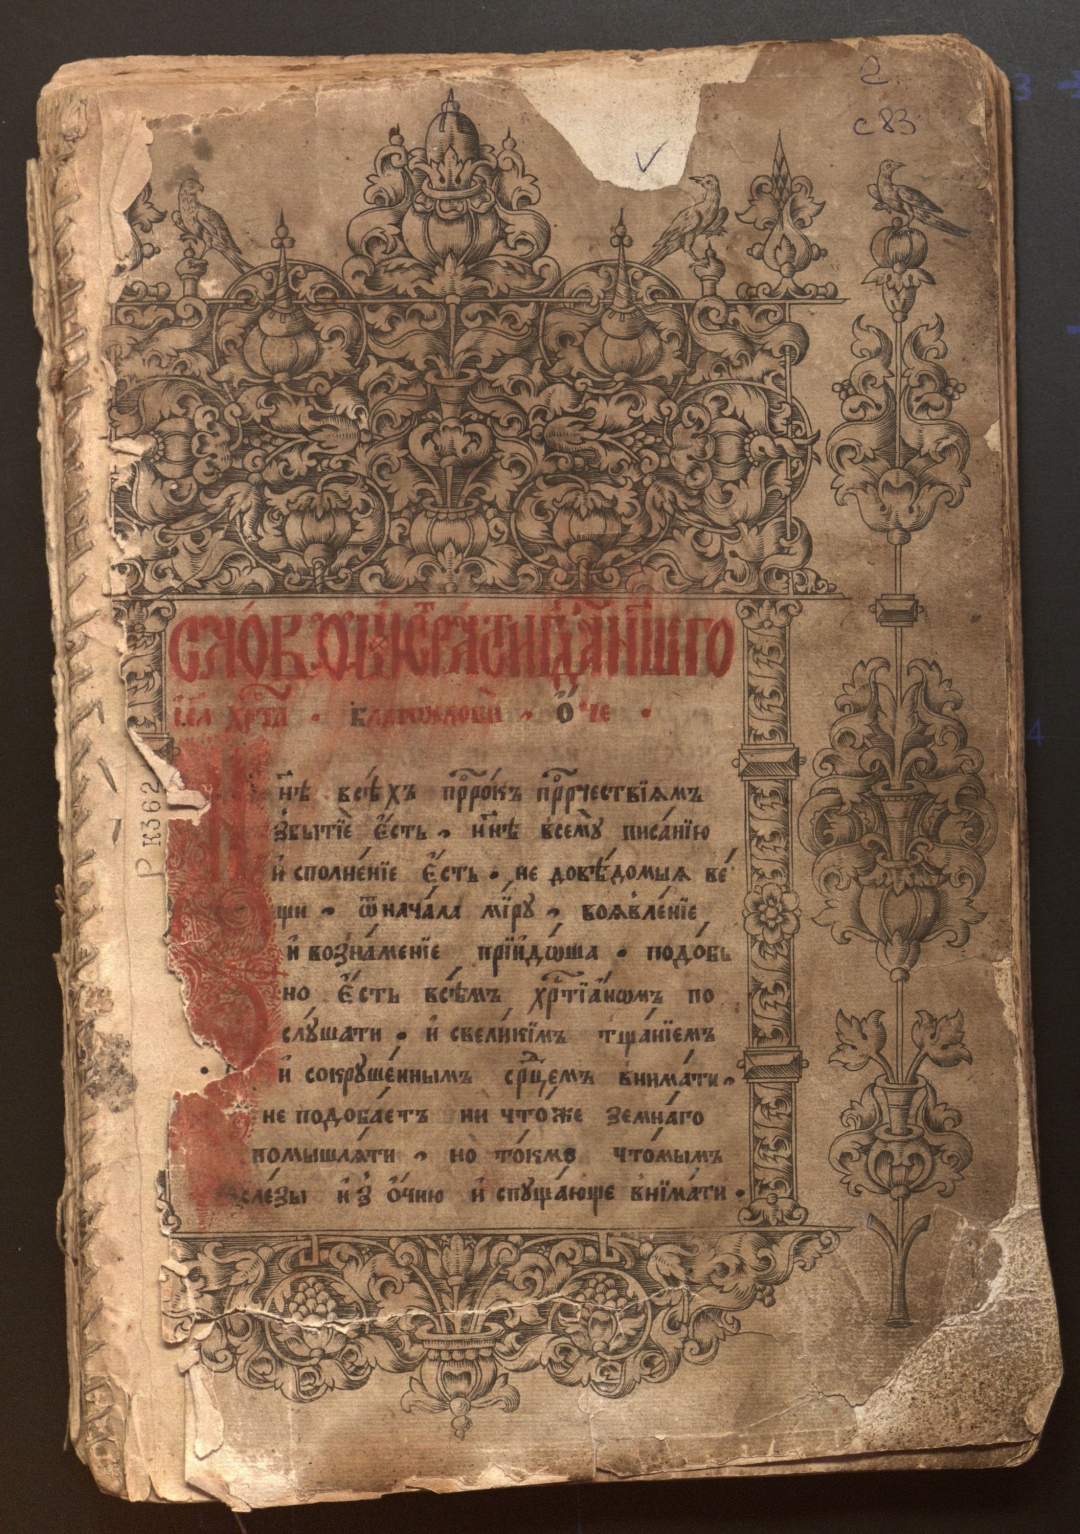 с 83
Р К362
і҆са хр҇та · бл҇гослови · ѻ҆́че ·
нн҃ѣ всѣ́хъ прⷪ҇ро́къ прⷪ҇рчествїѧмъ
збытїѐ є҆́сть , нн҃ѣ всемꙋ̀ писа́нїю
и҆сполне́нїе є҆́сть · не довѣ́домыѧ ве́
щи , ѿнача́ла мі́рꙋ , воꙗвле́нїе
и҆ возна́менїе прїидо́ша · подо́бь
но є҆́сть всѣ́мъ хр҇тїа́нѡмъ по
слꙋ́шати · и҆ свели́кїмъ тща́нїемъ
и҆ сокрꙋше́ннымъ срⷣцемъ внима́ти ,
не подоба́етъ ни что́же земна́го
помышлѧ́ти , но то́кмо что́мымъ
сле́зы и҆з̾ ѻ҆́чїю и҆спꙋща́юще внїма́ти ·